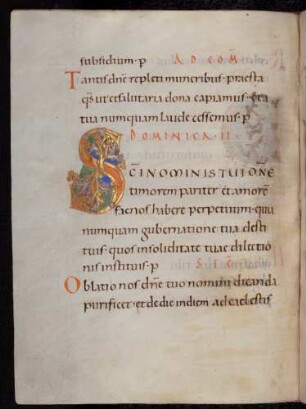 subsidium · p AD COM
Tantis dne repleti muneribus · praesta
qs ut et salutaria dona capiamus · & a
tua numquam laude cessemus · p
DOMINICA · II ·
SCI NOMINIS TUI DNE
timorem pariter & amore
fac nos habere perpetuum · quia
numquam gubernatione tua desti
tuis · quos in soliditate tuae dilectio
nis instituis · p SEC
Oblatio nos dne tuo nomini dicanda
purificet · et de die in diem ad caelestis